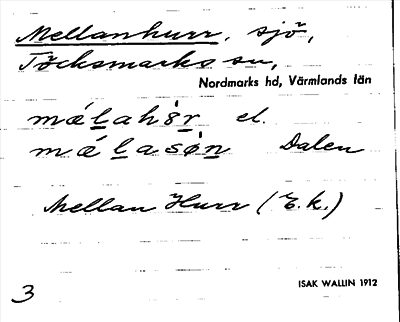 Mellanhurr, sjö,
Töcksmarks sn,
Nordmarks hd, Värmlands län
el.
Dalen
Mellan Hurr (E.k.)
3
ISAK WALLIN 1912